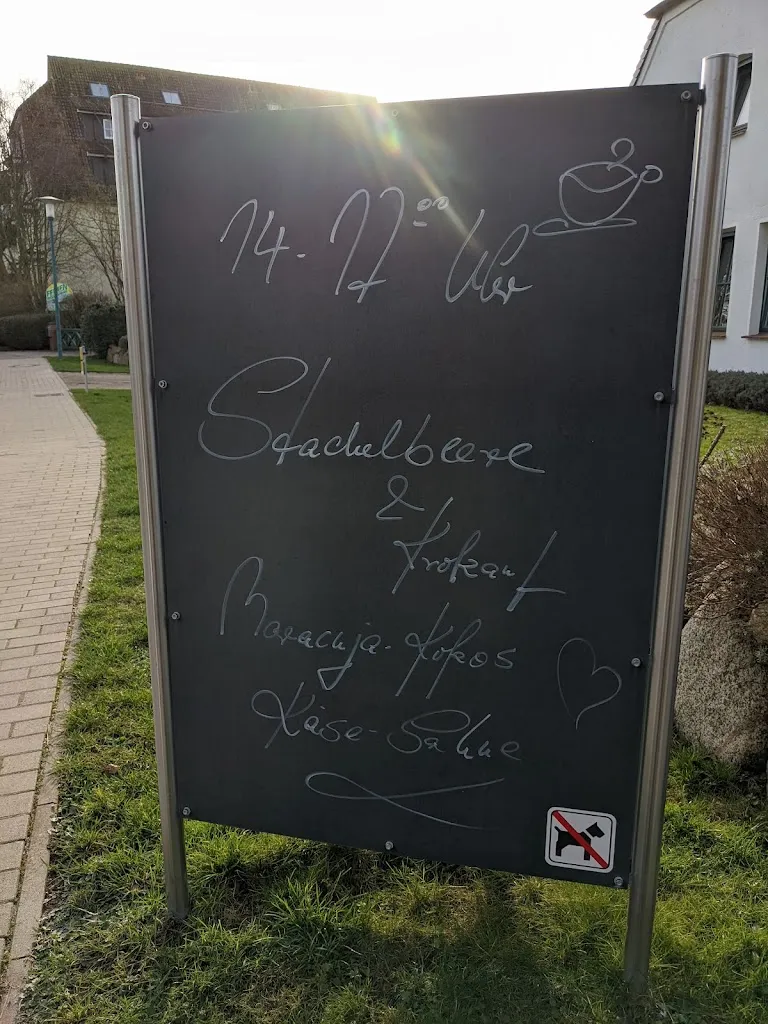 14.-17⁰⁰ Uhr
Stachelbeere
&
Krokant
Maracuja-Kokos
Käse-Sahne